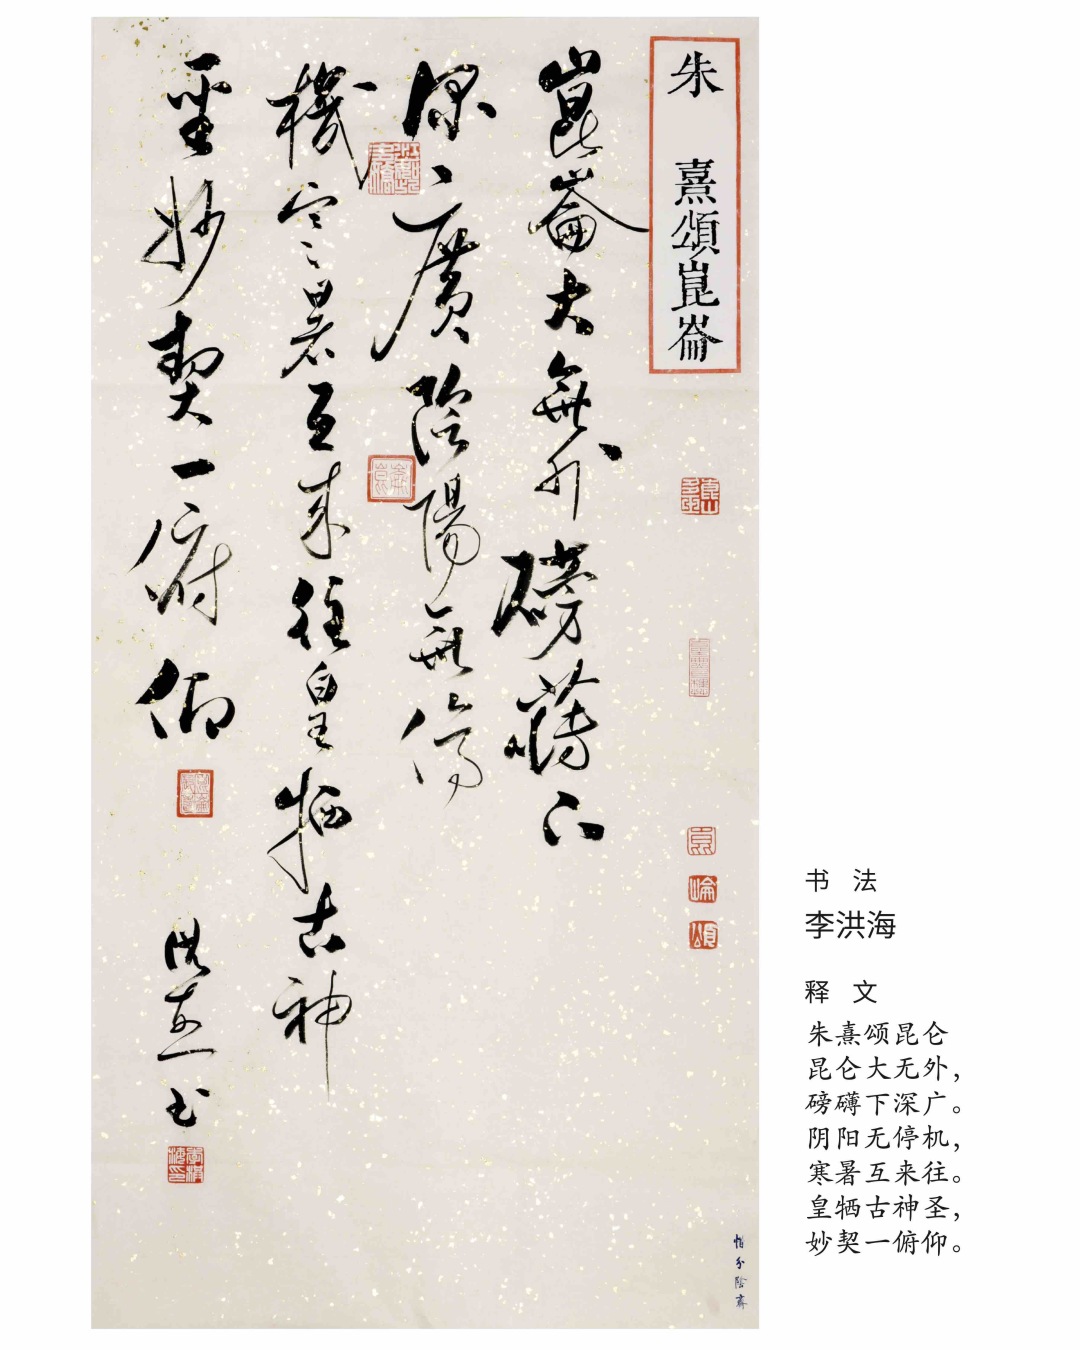 朱熹頌崑崙
崑崙大無外磅礴下
深廣陰陽無停
機寒暑互來往皇犧古神
聖妙契一俯仰
洪海书
惜分陰齋
书 法
李洪海
释 文
朱熹颂昆仑
昆仑大无外，
磅礴下深广。
阴阳无停机，
寒暑互来往。
皇牺古神圣，
妙契一俯仰。